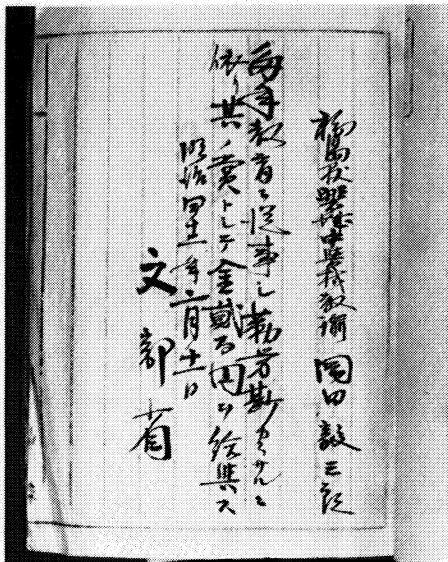 中學校教諭 岡田毅三郎
年教育ニ從事シ勤勞尠カラサルニ
依リ其ノ賞トシテ金貳百円ヲ給與ス
明治四十一年二月十一日
文部省